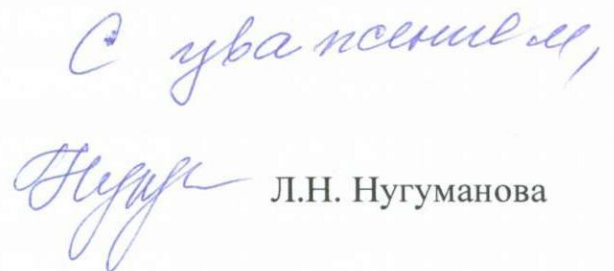 С уважением,
Л.Н. Нугуманова